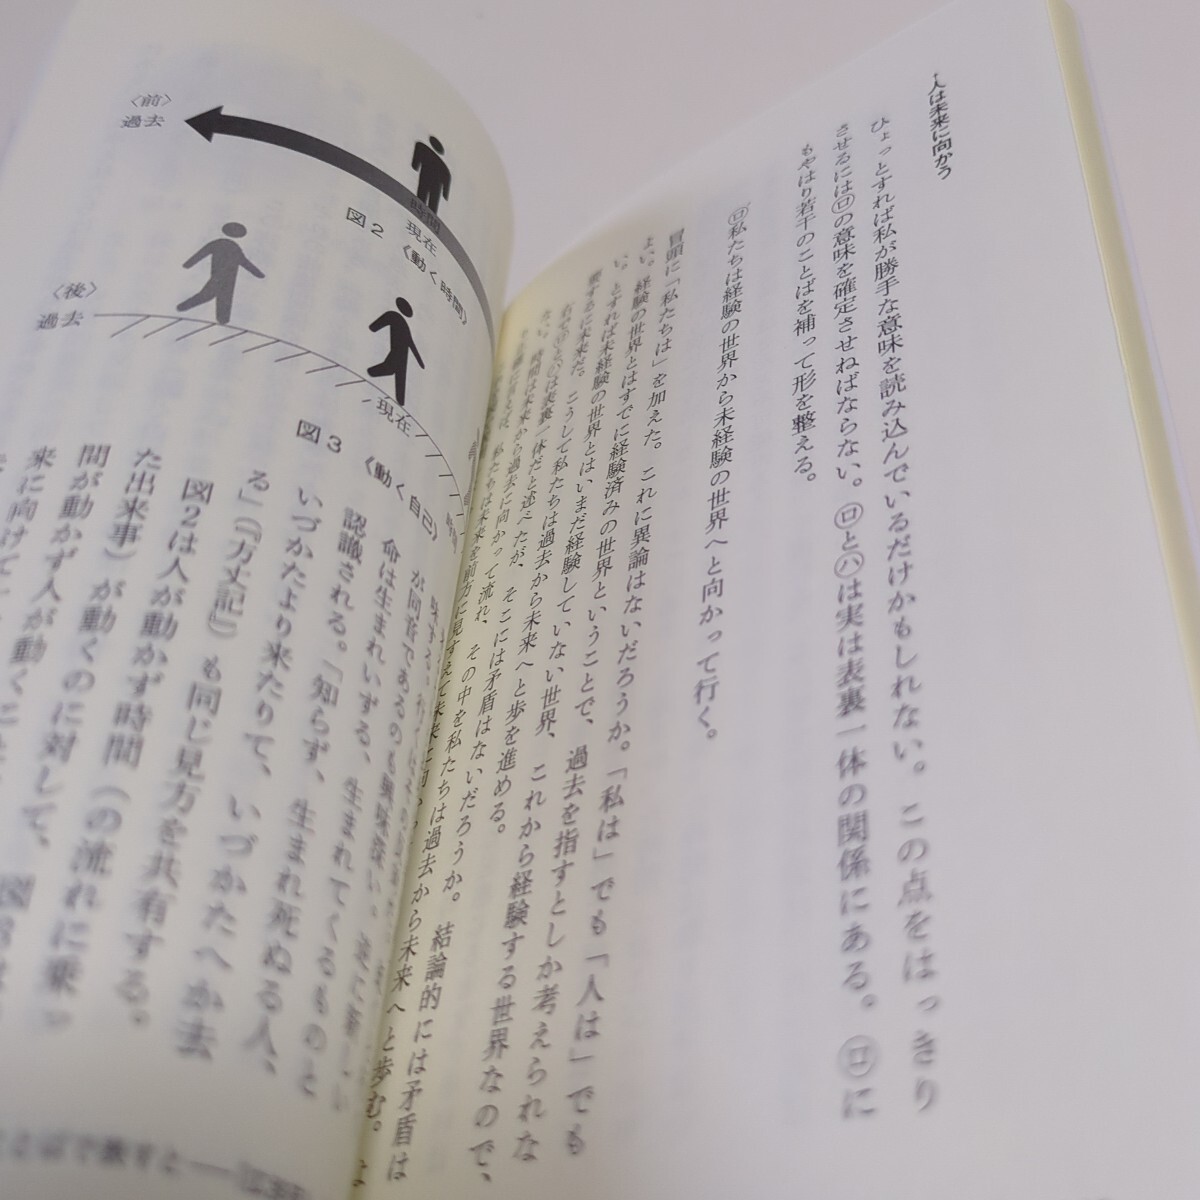 人は未来に向かう
ひょっとすれば私が勝手な意味を読み込んでいるだけかもしれない。この点をはっきり
させるには㋺の意味を確定させねばならない。㋺と㋩は実は表裏一体の関係にある。㋺に
もやはり若干のことばを補って形を整える。
㋺私たちは経験の世界から未経験の世界へと向かって行く。
冒頭に「私たちは」を加えた。これに異論はないだろうか。「私は」でも「人は」でも
よい。経験の世界とはすでに経験済みの世界ということで、過去を指すとしか考えられな
い。とすれば未経験の世界とはいまだ経験していない世界、これから経験する世界なので、
要するに未来だ。こうして私たちは過去から未来へと歩を進める。
右で㋺と㋩は表裏一体だと述べたが、そこには矛盾はないだろうか。結論的には矛盾は
ない。時間は未来から過去に向かって流れ、その中を私たちは過去から未来へと歩む。
〈前〉
過去
時間
現在
図2 〈動く時間〉
〈後〉
過去
現在
図3 〈動く自己〉
命は生まれいずる、生まれてくるものと
認識される。「知らず、生まれ死ぬる人、
いづかたより来たりて、いづかたへか去
る」(『方丈記』)も同じ見方を共有する。
図2は人が動かず時間(の流れに乗っ
た出来事)が動くのに対して、図3は
間が動かず人が動く
来に向けて